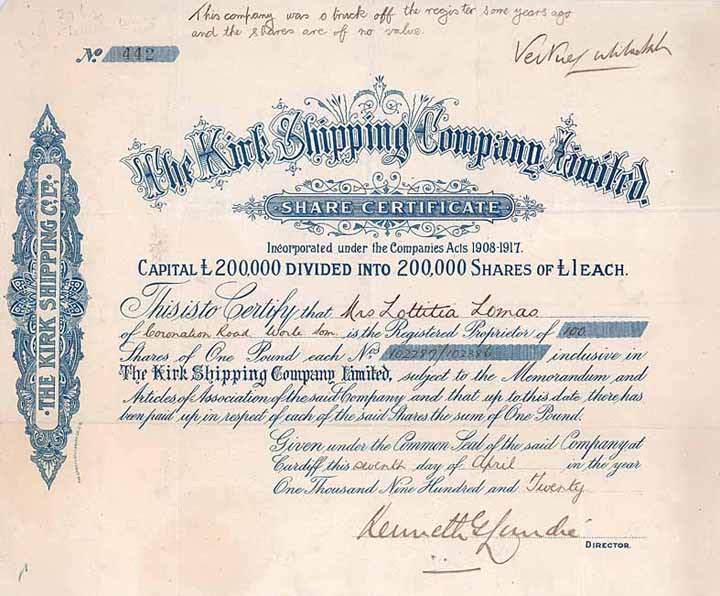 This company was struck off the register some years ago
and the shares are of no value.
No 442
The Kirk Shipping Company, Limited.
SHARE CERTIFICATE
Incorporated under the Companies Acts 1908-1917.
CAPITAL £200,000 DIVIDED INTO 200,000 SHARES OF £1 EACH.
This is to Certify that Mrs Lottitia Lomas
of Coronation Road Worle Som. is the Registered Proprietor of 100
Shares of One Pound each Nos 102287/102386 inclusive in
The Kirk Shipping Company Limited, subject to the Memorandum and
Articles of Association of the said Company and that up to this date, there has
been paid up in respect of each of the said Shares the sum of One Pound.
Given under the Common Seal of the said Company at
Cardiff this seventh day of April in the year
One Thousand Nine Hundred and Twenty
Kenneth
DIRECTOR.
THE KIRK SHIPPING Co. LD.